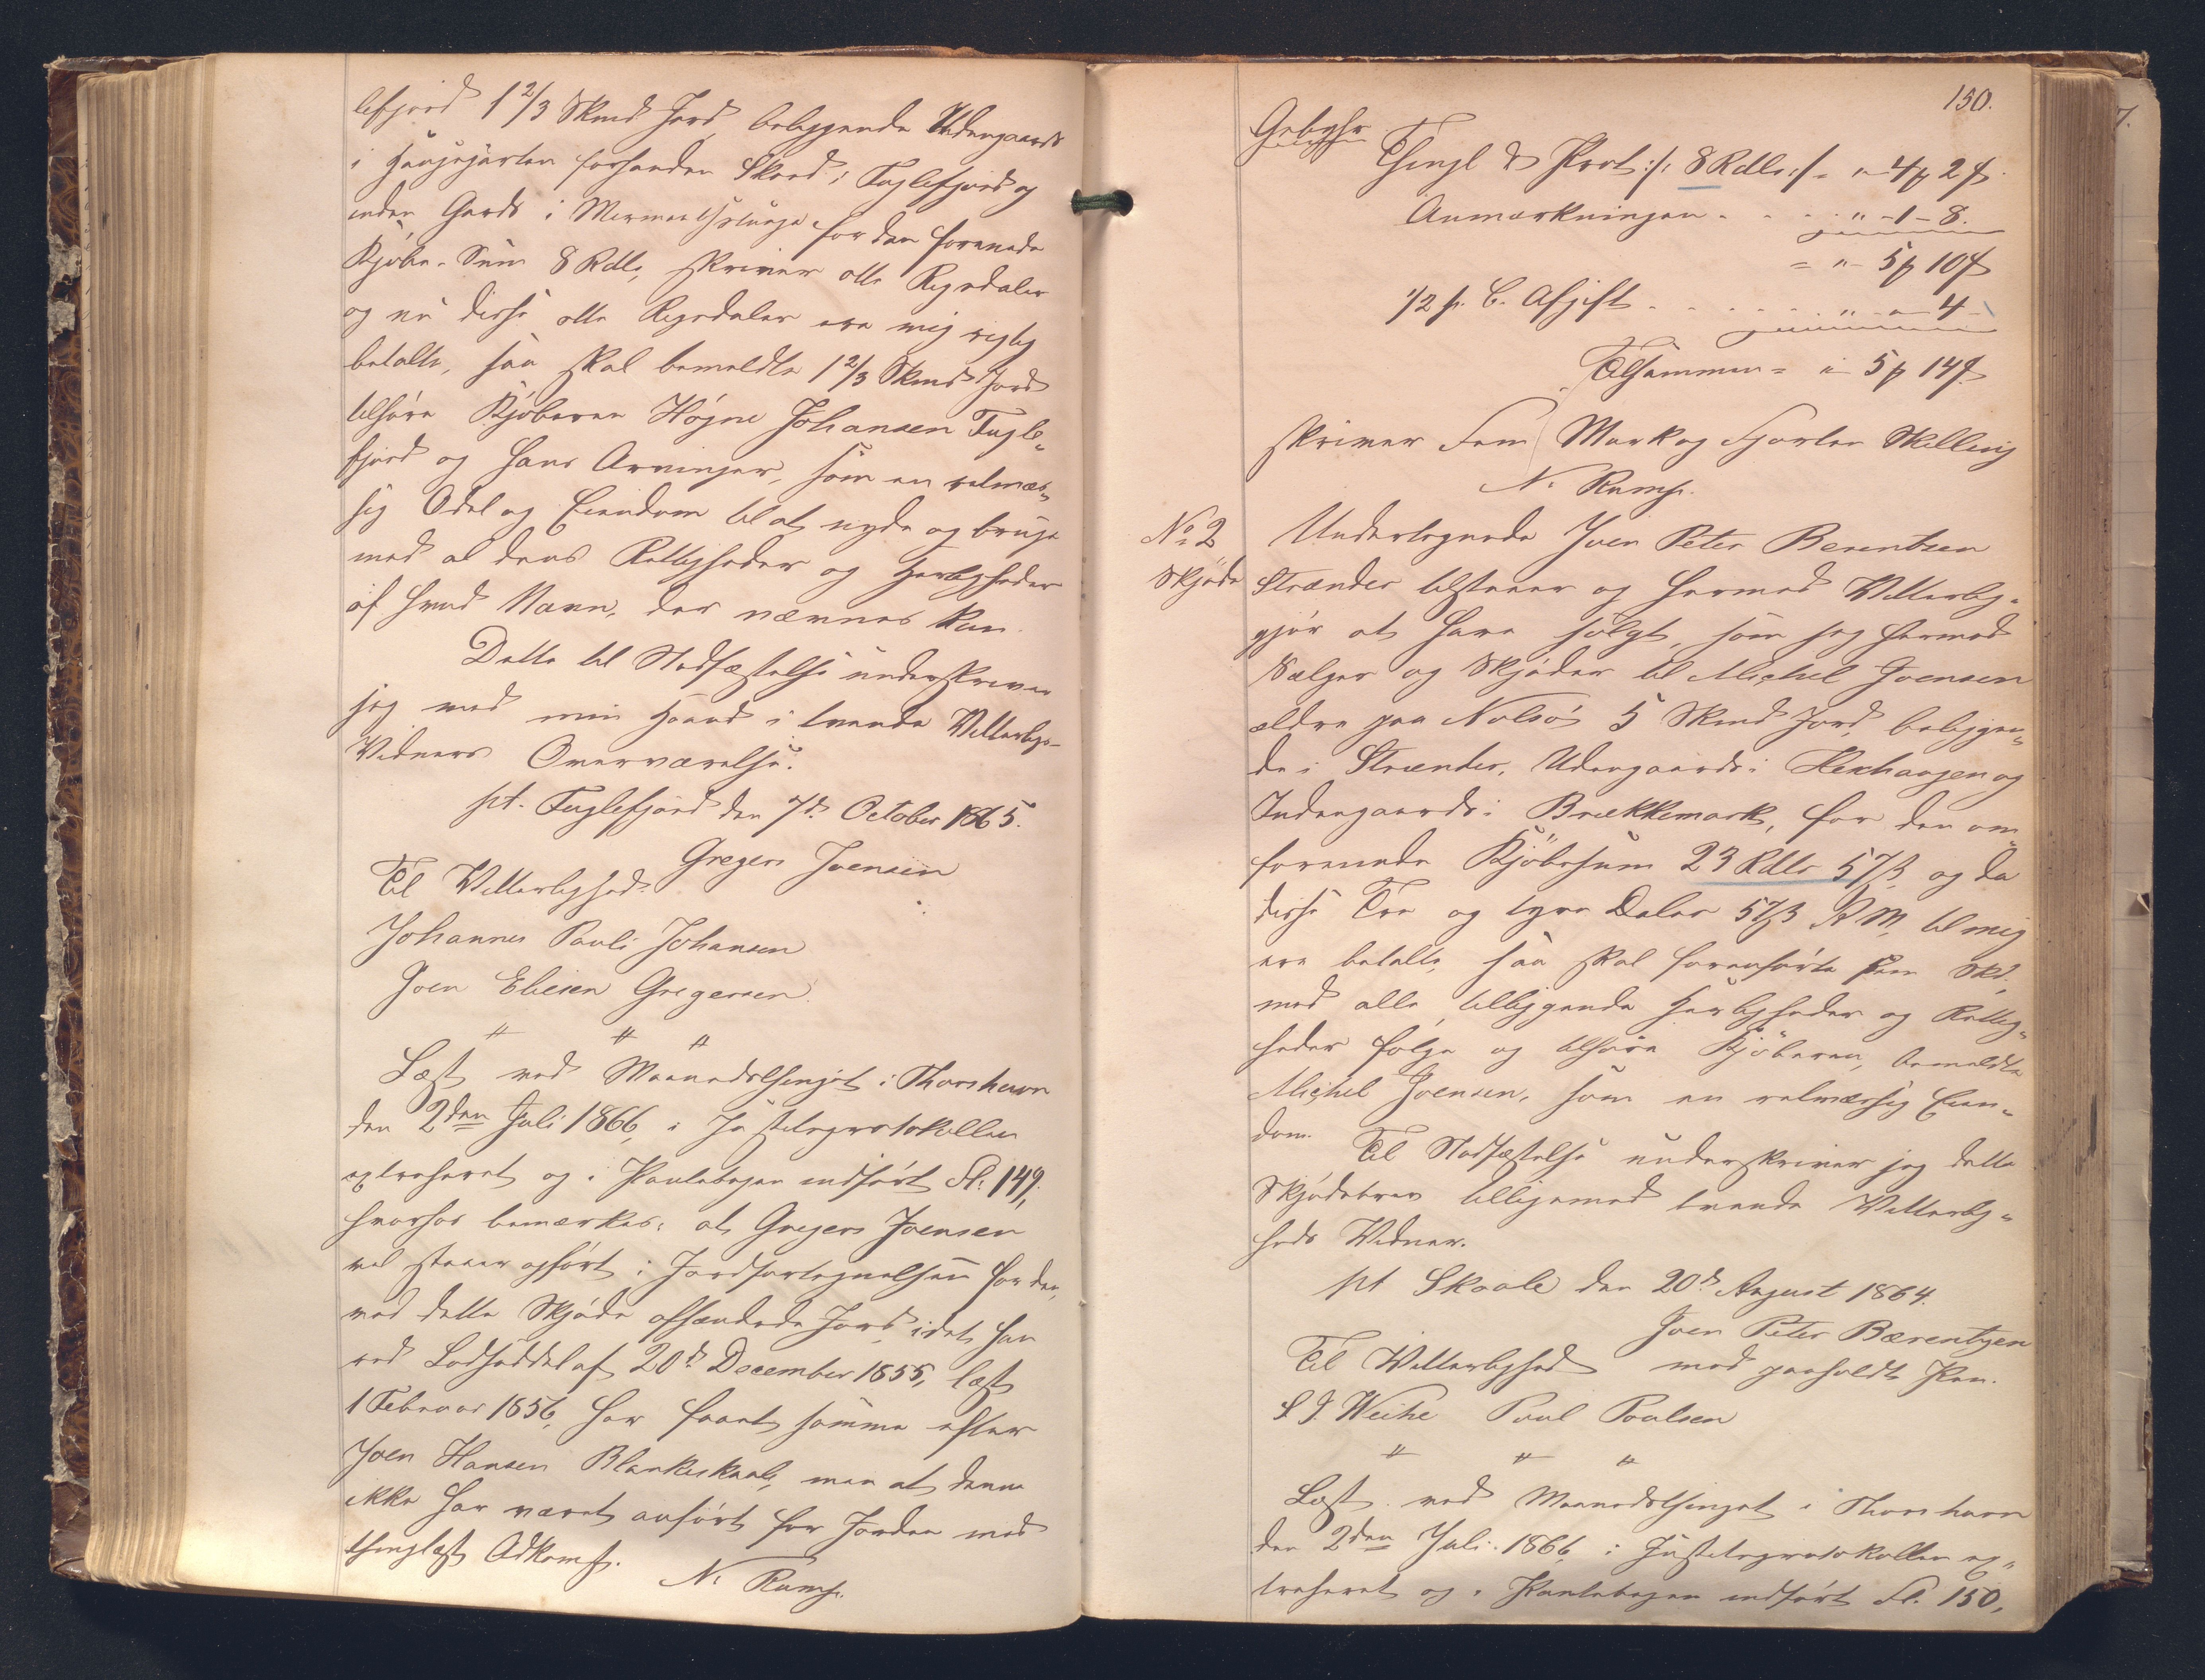 lefjord 1 2/3 Skind Jord, beliggende Udengaards
i Haugegjerten forhanden Skord i Fuglefjord og
inden Gards i Mermantslunge for den forenede
Kjöbe-Sum 8 Rdlr, skriver otte Rigsdaler
og nu disse otte Rigsdaler ere mig rigtig
betalte, saa skal bemeldte 1 2/3 Skind Jord
tilhöre Kjöberen Högne Johansen Fugle„
fjord og hans Arvinger, som en velmæs„
sig Odel og Eiendom til at nyde og bruge
med al dens Rettigheder og Herligheder
af hvad Navn, der nævnes kan.
Dette til Stadfæstelse underskriver
jeg med min Haand i tvende Vitterligs-
Vidners Overværelse.
pt. Fuglefjord den 7d October 1865.
Gregers Joensen
Til Vitterlighed
Johannes Pauli Johansen
Joen Eliesen Gregersen
" " "
Læst ved Maanedsthinget i Thorshavn
den 2den Juli 1866, i Justitsprotokollen
extraheret og i Pantebogen indfört Fl. 149,
hvorhos bemærkes: at Gregers Joensen
vel staaer opfört i Jordfortegnelsen for den,
ved dette Skjöde afhændede Jord, idet han
ved Lodseddel af 20d December 1855, læst
1 Februar 1856, har faaet samme efter
Joen Hansen Blankeskaale, men at denne
ikke har været anfört for Jorden med
thinglæst Adkomst.
N. Rump.
150.
Gebyhr
Thingl & Prot :/: 8 Rdlr :/: „ 4 ₰ 2 ß
Anmærkningen - - - " - 1 - 8.
= " - 5 ₰ 10 ß
1/2 p. C. Afgift - - - - " - " - 4 -
Tilsammen = " 5 ₰ 14 ß
skriver Fem Mark og Fjorten Skilling
N. Rump.
No 2
Skjöde
Undertegnede Joen Peter Berentsen
Strænder tilstaaer og hermed Vitterlig-
gjör at have solgt, som jeg hermed
Sælger og Skjöder til Michel Joensen
ældre paa Nolsö 5 Skind Jord, beliggen„
de i Strænder, Udengaards i Hexhaugen og
Indengaards i Brækkemark, for den om
forenede Kjöbesum 23 Rdlr 57 ß, og da
disse Tre og tyve Daler 57 ß R M, til mig
ere betalte, saa skal forenförte fem Skd,
med alle tilliggende Herligheder og Rettig„
heder fölge og tilhöre Kjöberen, bemeldte
Michel Joensen, som en velmæssig Eien„
dom.
Til Stadfæstelse underskriver jeg dette
Skjödebrev tilligemed tvende Vitterlig„
heds Vidner.
pt Skaale den 20d August 1864.
Joen Peter Bærentzen
Til Vitterlighed med paaholdt Pen.
S. J. Weihe Poul Poulsen
" " "
Læst ved Maanedsthinget i Thorshavn
den 2den Juli 1866, i Justitsprotokollen ex„
traheret og i Pantebogen indfört Fl. 150,